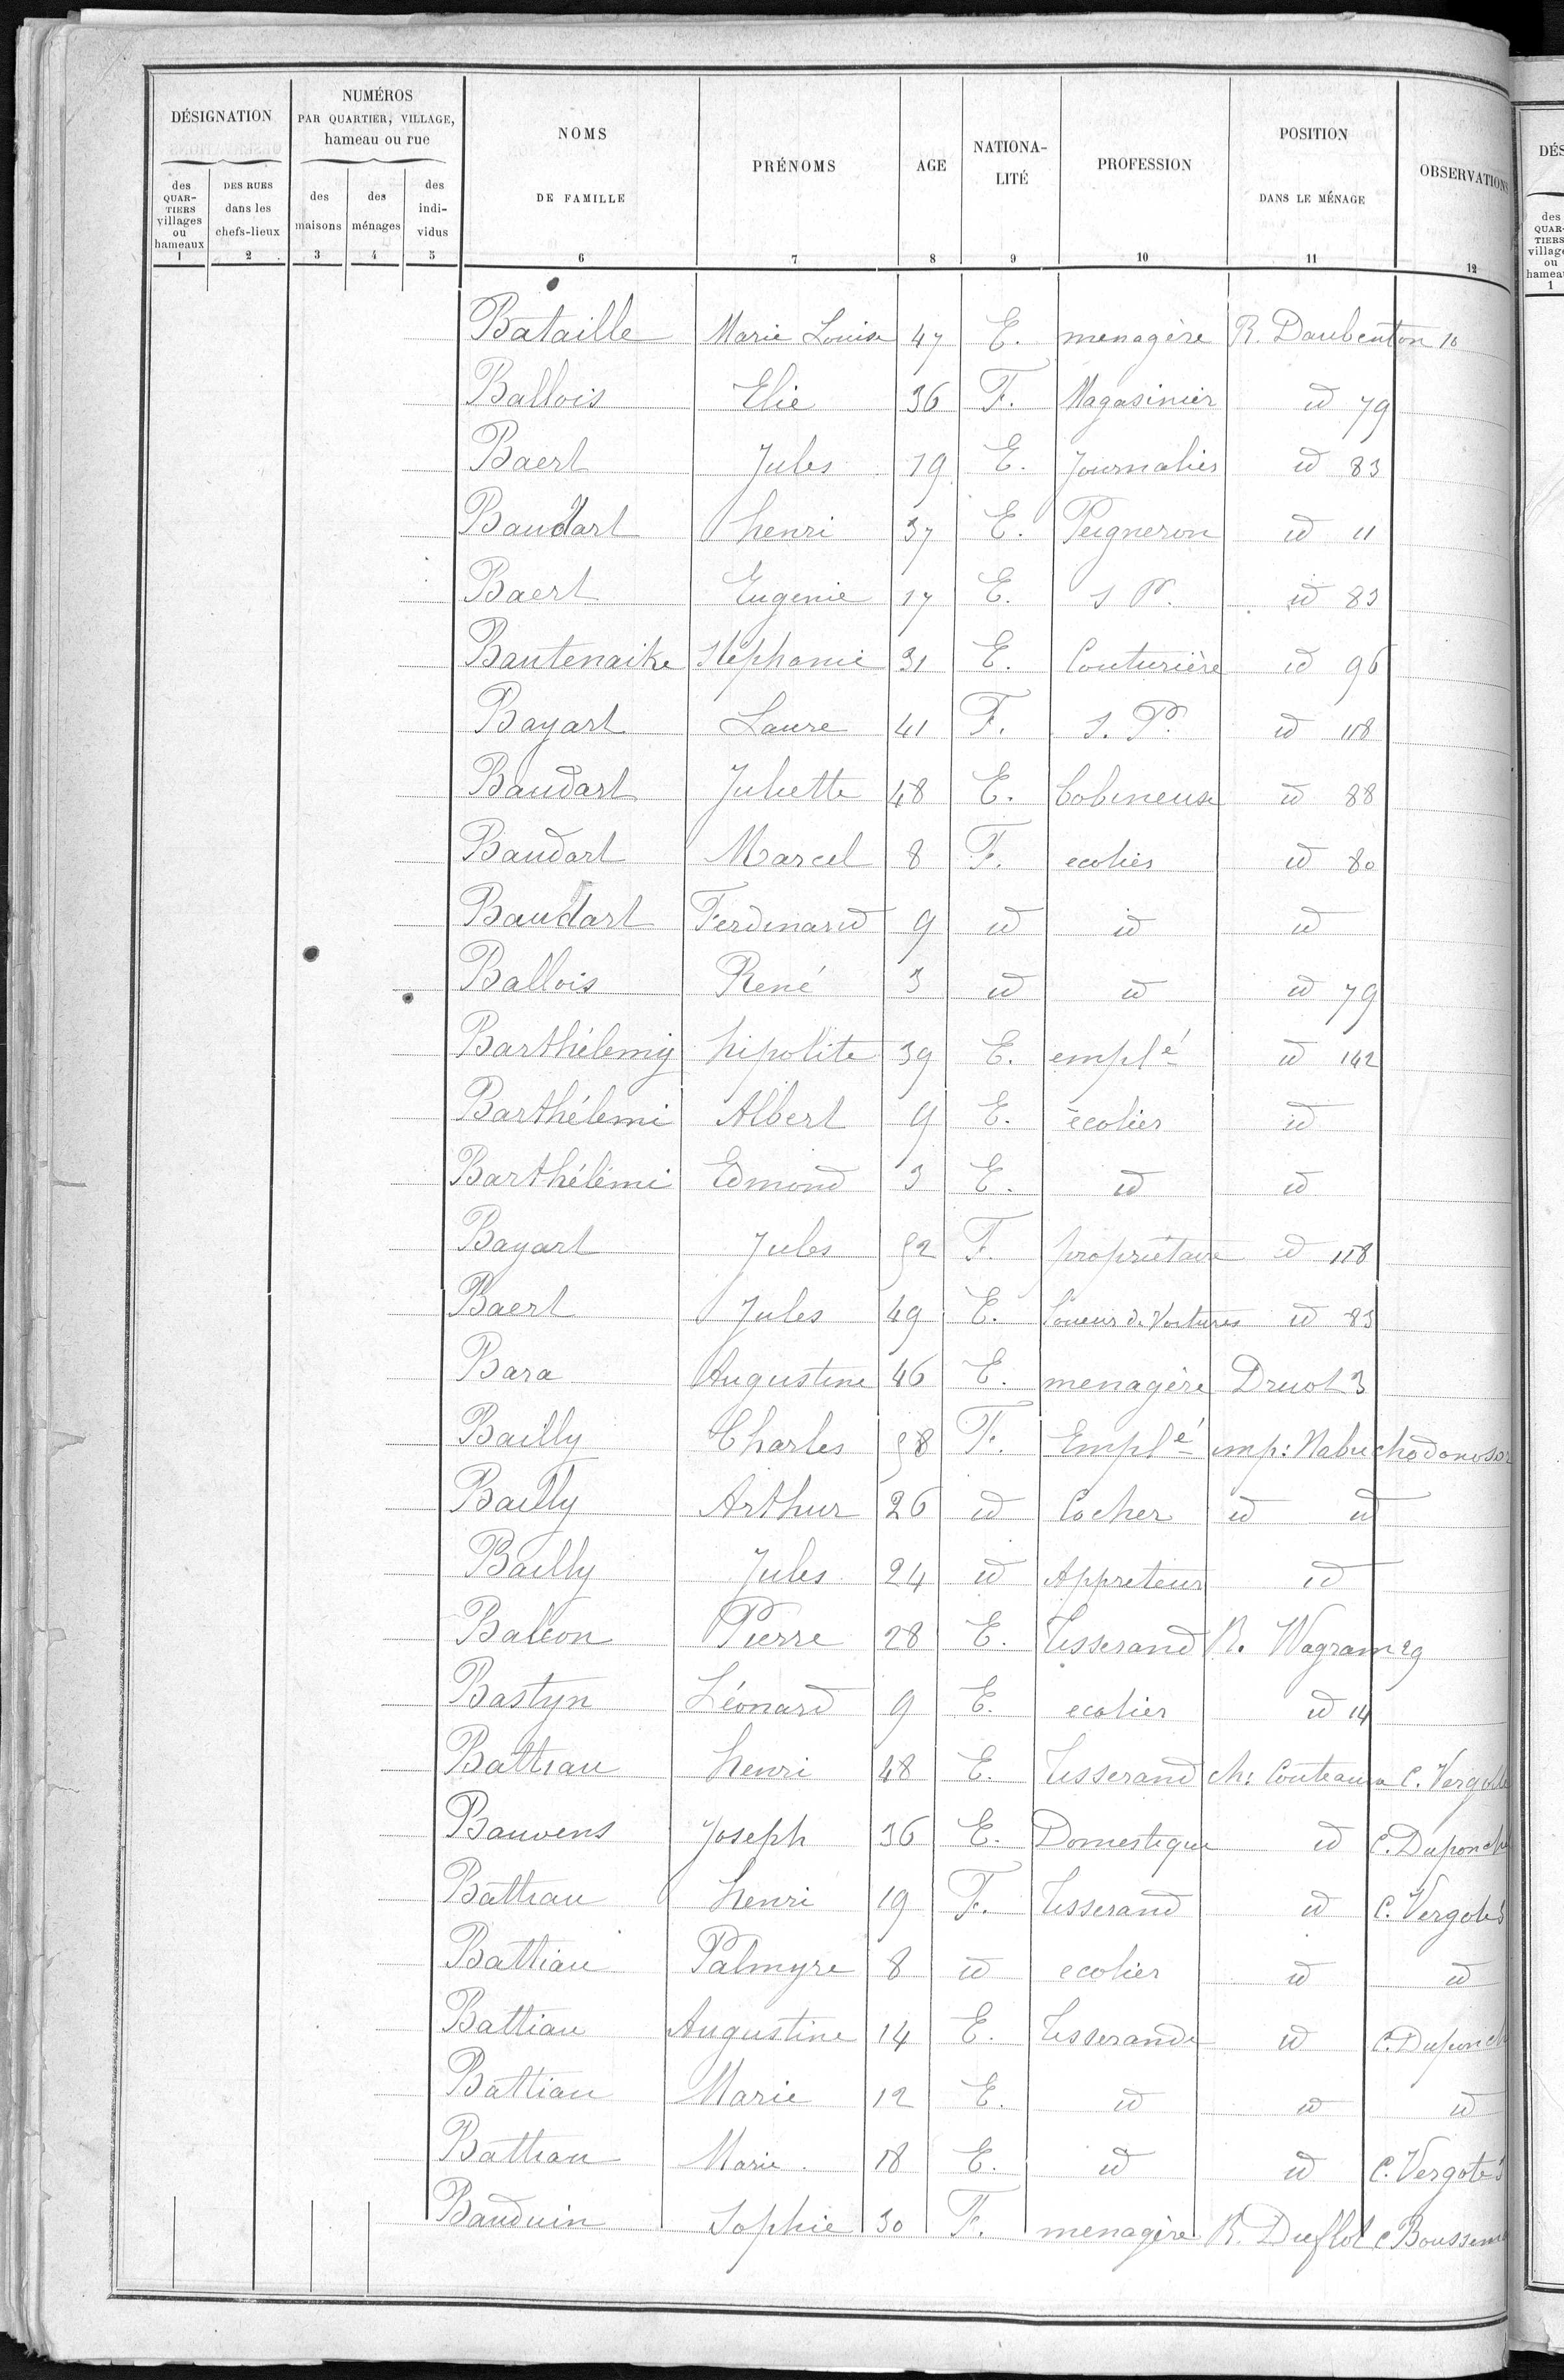 DÉSIGNATION
NUMÉROS
PAR QUARTIER, VILLAGE,
hameau ou rue
NOMS
DE FAMILLE
PRÉNOMS
AGE
NATIONA-
LITÉ
PROFESSION
POSITION
DANS LE MÉNAGE
OBSERVATIONS
des QUAR-TIERS villages ou hameaux
DES RUES dans les chefs-lieux
des maisons
des ménages
des indi-vidus
1 2 3 4 5 6 7 8 9 10 11 12
Bataille Marie Louise 47 E. menagère R. Daubenton 10
Ballois Elie 36 F. Magasinier id 79
Baert Jules 19 E. Journalier id 83
Baudart henri 37 E. Peigneron id 11
Baert Eugenie 17 E. S P. id 83
Bautenaike Stéphanie 31 E. Couturière id 96
Bayart Laure 41 F. S. P. id 118
Baudart Juliette 48 E. bobineuse id 88
Baudart Marcel 8 F. ecolier id 80
Baudart Ferdinand 9 id id id
Ballois René 3 id id id 79
Barthélemy hipolite 39 E. emplé id 142
Barthélemi Albert 9 E. écolier id
Barthélémi Edmond 3 E. id id
Bayart Jules 52 F. propriétaire id 118
Baert Jules 49 E. loueur de Voitures id 83
Bara Augustine 46 E. menagère Druot 3
Bailly Charles 58 F. Emplé imp: Nabuchodonosor
Bailly Arthur 26 id Cocher id id
Bailly Jules 24 id Appreteur id
Baleon Pierre 28 E. Tisserand R. Wagram 29
Bastyn Léonard 9 E. ecolier id 14
Battiau henri 48 E. Tisserand ch: Couteaux C. Vergotte
Bauwens Joseph 36 E. Domestique id C. Duponch
Battiau henri 19 F. Tisserand id C. Vergotés
Battiau Palmyre 8 id ecolier id id
Battiau Augustine 14 E. Tisserande id C. Duponch
Battiau Marie 12 E. id id id
Battiau Marie. 18 E. id id C. Vergotés
Bauduin Sophie 30 F. menagère R. Duflot C Boussem
DÉS
des
QUAR-
TIERS
village
ou
hameau
1